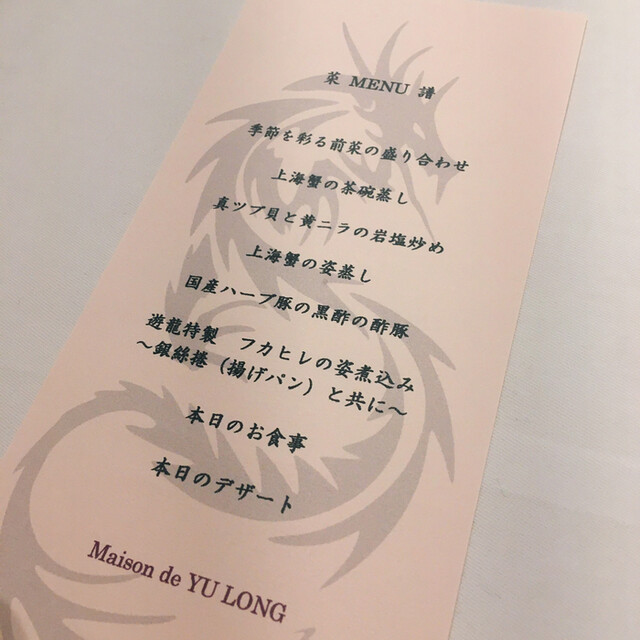 菜 MENU 譜
季節を彩る前菜の盛り合わせ
上海蟹の茶碗蒸し
真ツブ貝と黄ニラの岩塩炒め
上海蟹の姿蒸し
国産ハーブ豚の黒酢の酢豚
遊龍特製 フカヒレの姿煮込み
～銀絲捲（揚げパン）と共に～
本日のお食事
本日のデザート
Maison de YU LONG